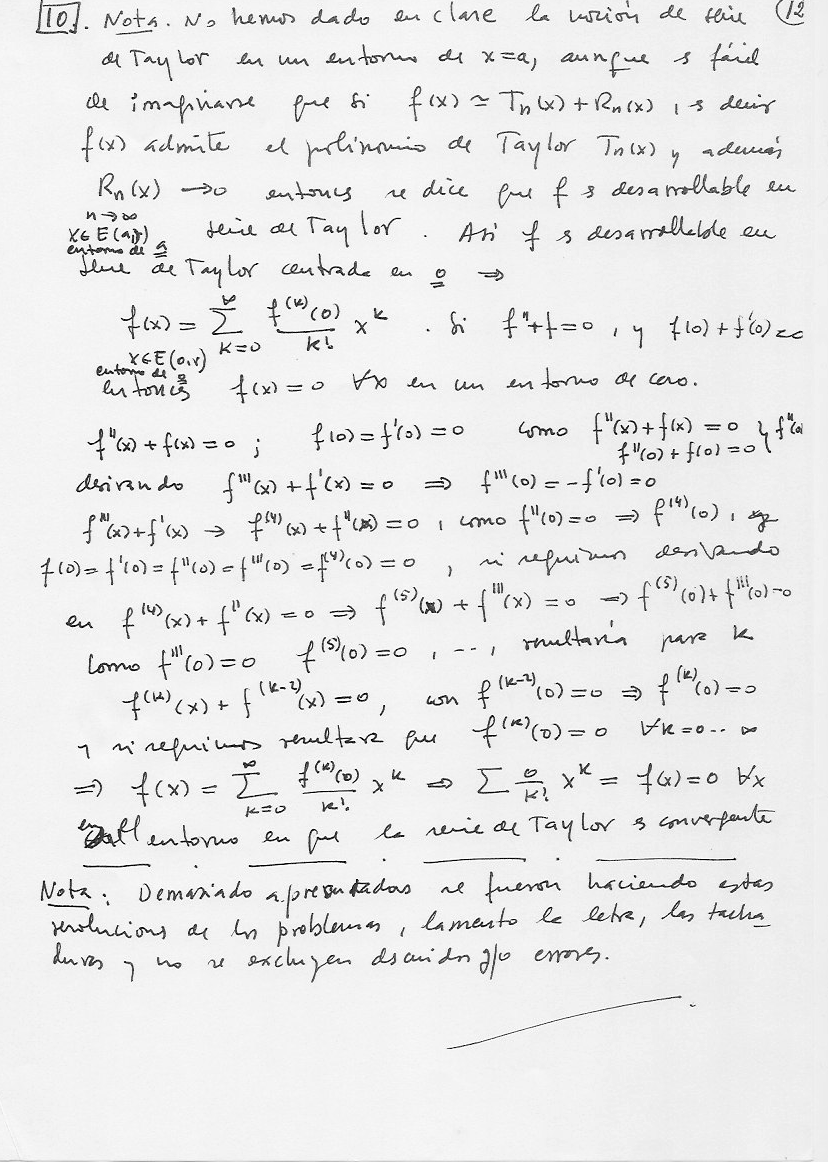 10. Nota. No hemos dado en clase la noción de serie 12
de Taylor en un entorno de x=a, aunque es fácil
de imaginarse que si f(x) ≃ Tn(x) + Rn(x), es decir
f(x) admite el polinomio de Taylor Tn(x) y además
Rn(x) → 0 entonces se dice que f es desarrollable en
n→∞
x∈E(a,r) serie de Taylor. Asi f es desarrollable en
entorno de a
serie de Taylor centrada en 0 ⇒
f(x) = ∑_{k=0}^{∞} f^(k)(0)/k! x^k . Si f''+f=0, y f(0)+f'(0)=0
x∈E(0,r)
entorno de 0
entonces f(x)=0 ∀x en un entorno de cero.
f''(x)+f(x)=0 ; f(0)=f'(0)=0 como f''(x)+f(x)=0 } f''(0)
f''(0)+f(0)=0
derivando f'''(x)+f'(x)=0 ⇒ f'''(0)=-f'(0)=0
f'''(x)+f'(x) → f^(4)(x)+f''(x)=0, como f''(0)=0 ⇒ f^(4)(0),
f(0)=f'(0)=f''(0)=f'''(0)=f^(4)(0)=0, si seguimos derivando
en f^(4)(x)+f''(x)=0 ⇒ f^(5)(x)+f'''(x)=0 ⇒ f^(5)(0)+f'''(0)=0
como f'''(0)=0 f^(5)(0)=0, ..., resultaría para k
f^(k)(x)+f^(k-2)(x)=0, con f^(k-2)(0)=0 ⇒ f^(k)(0)=0
y si seguimos resultará que f^(k)(0)=0 ∀k=0..∞
⇒ f(x) = ∑_{k=0}^{∞} f^(k)(0)/k! x^k ⇒ ∑ 0/k! x^k = f(x)=0 ∀x
en el entorno en que la serie de Taylor es convergente
Nota: Demasiado apresuradas se fueron haciendo estas
resoluciones de los problemas, lamento la letra, las tacha
duras y no se excluyen descuidos y/o errores.